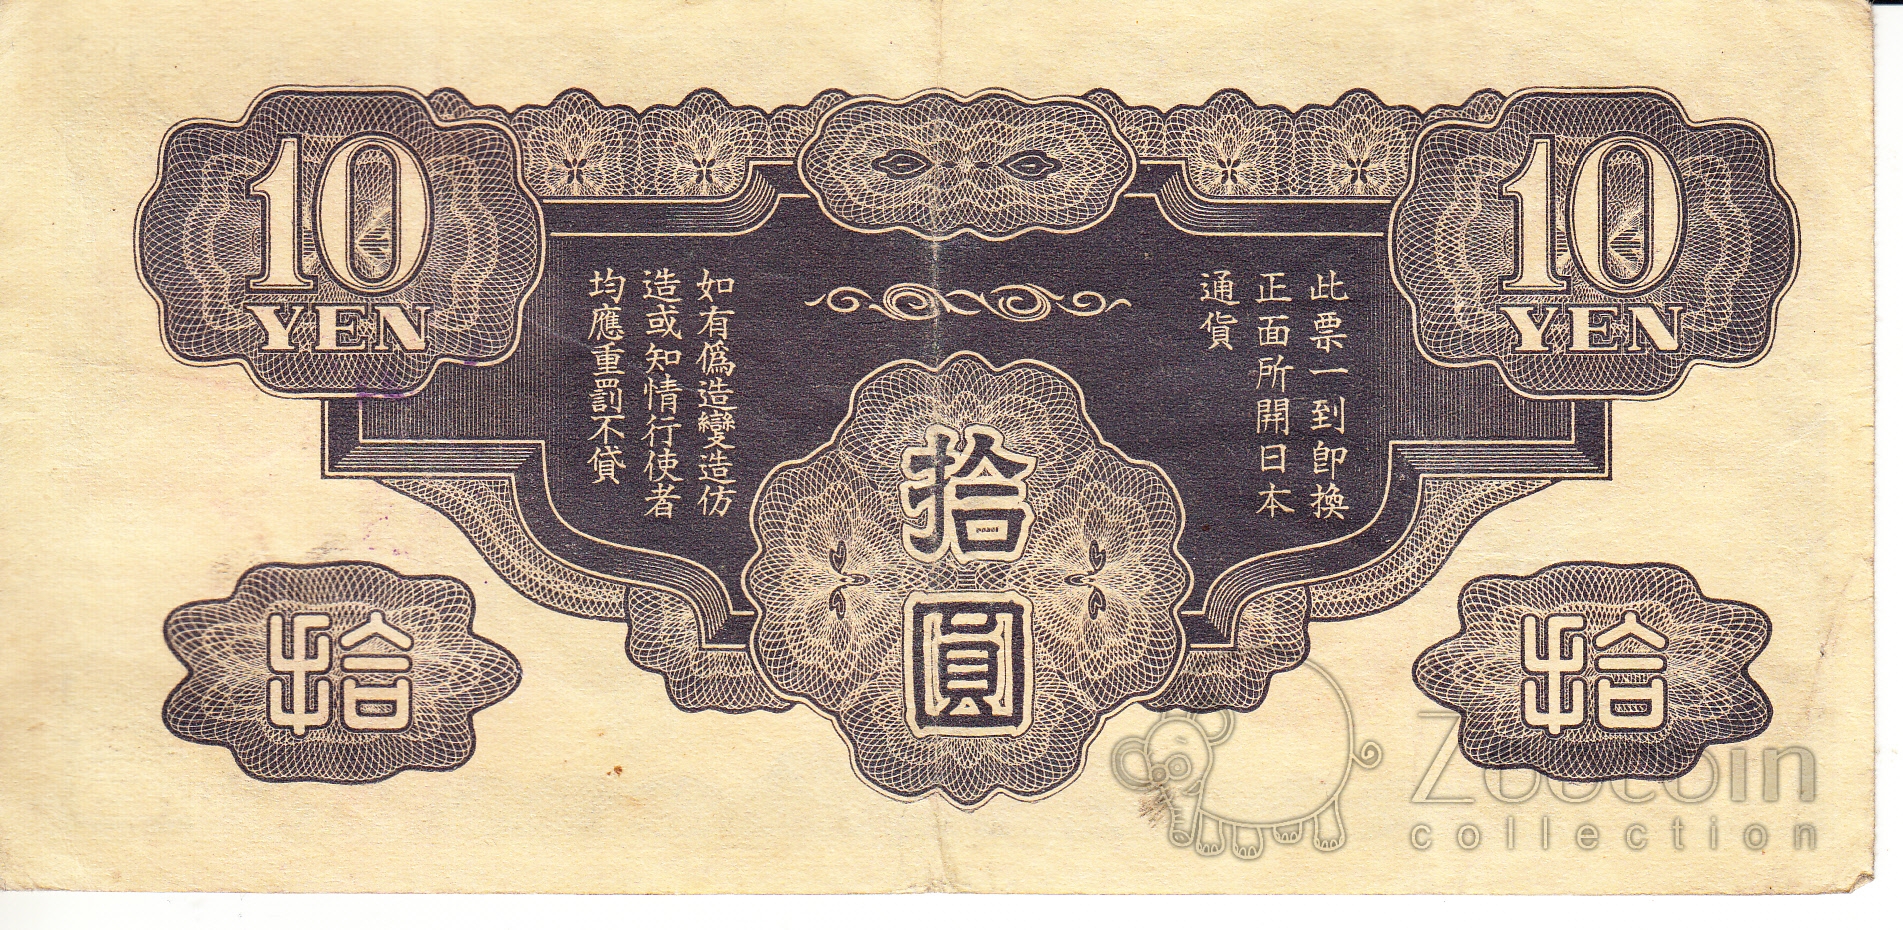 10
YEN
10
YEN
此票一到即換
正面所開日本
通貨
如有僞造變造仿
造或知情行使者
均應重罰不貸
拾
圓
拾
拾
Zoocoin
collection